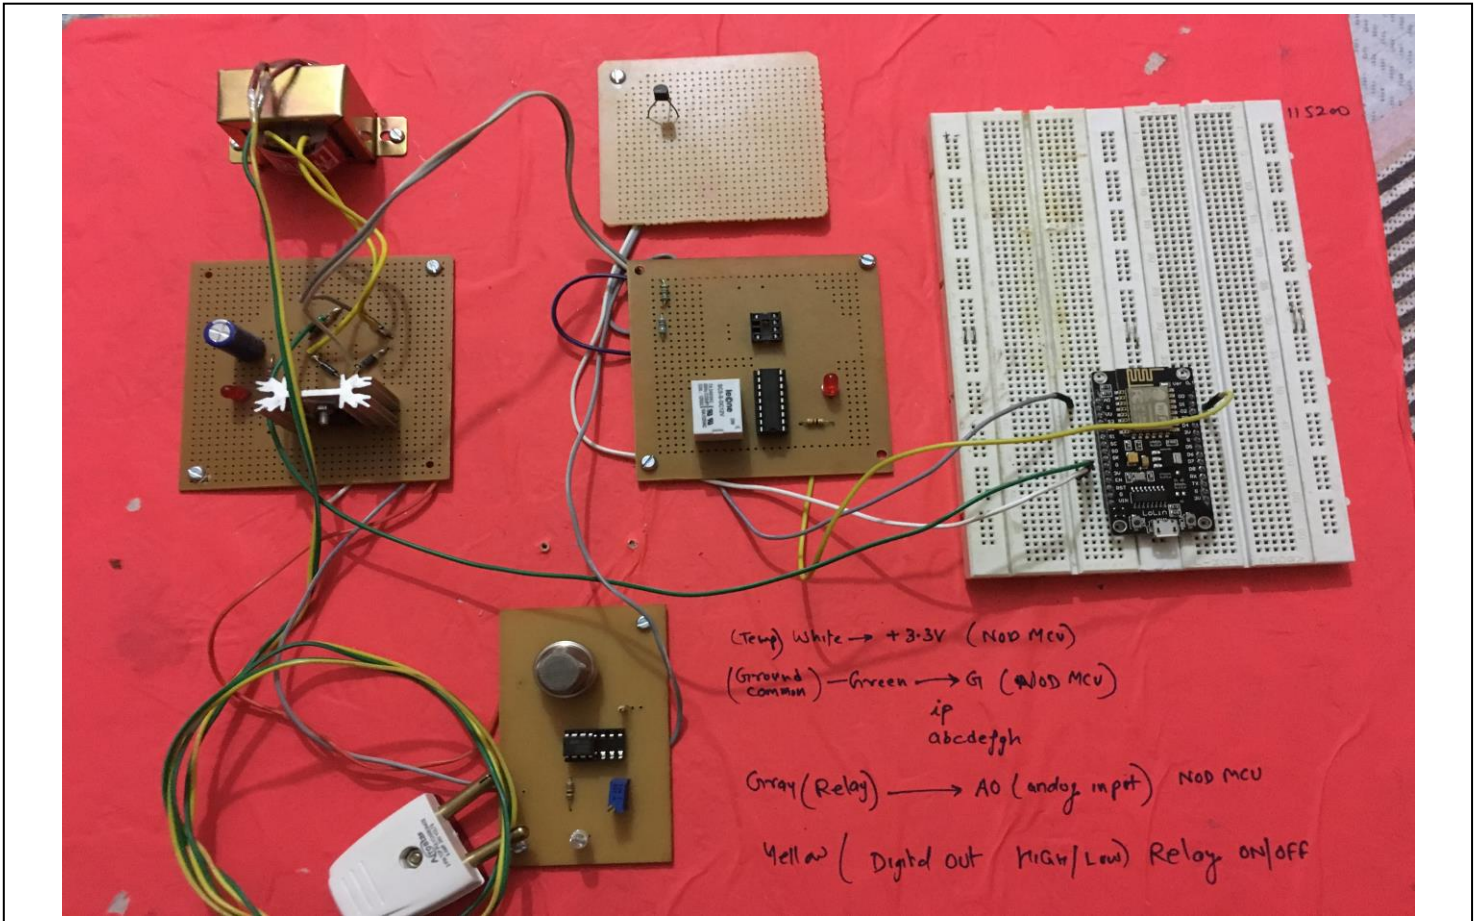 115200
leone
LoLin
(Temp) White → +3.3V (NOD MCU)
(Ground common) — Green → G (NOD MCU)
ip
abcdefgh
Gray (Relay) → A0 (analog input) NOD MCU
Yellow ( Digital Out HIGH/Low) Relay ON/OFF